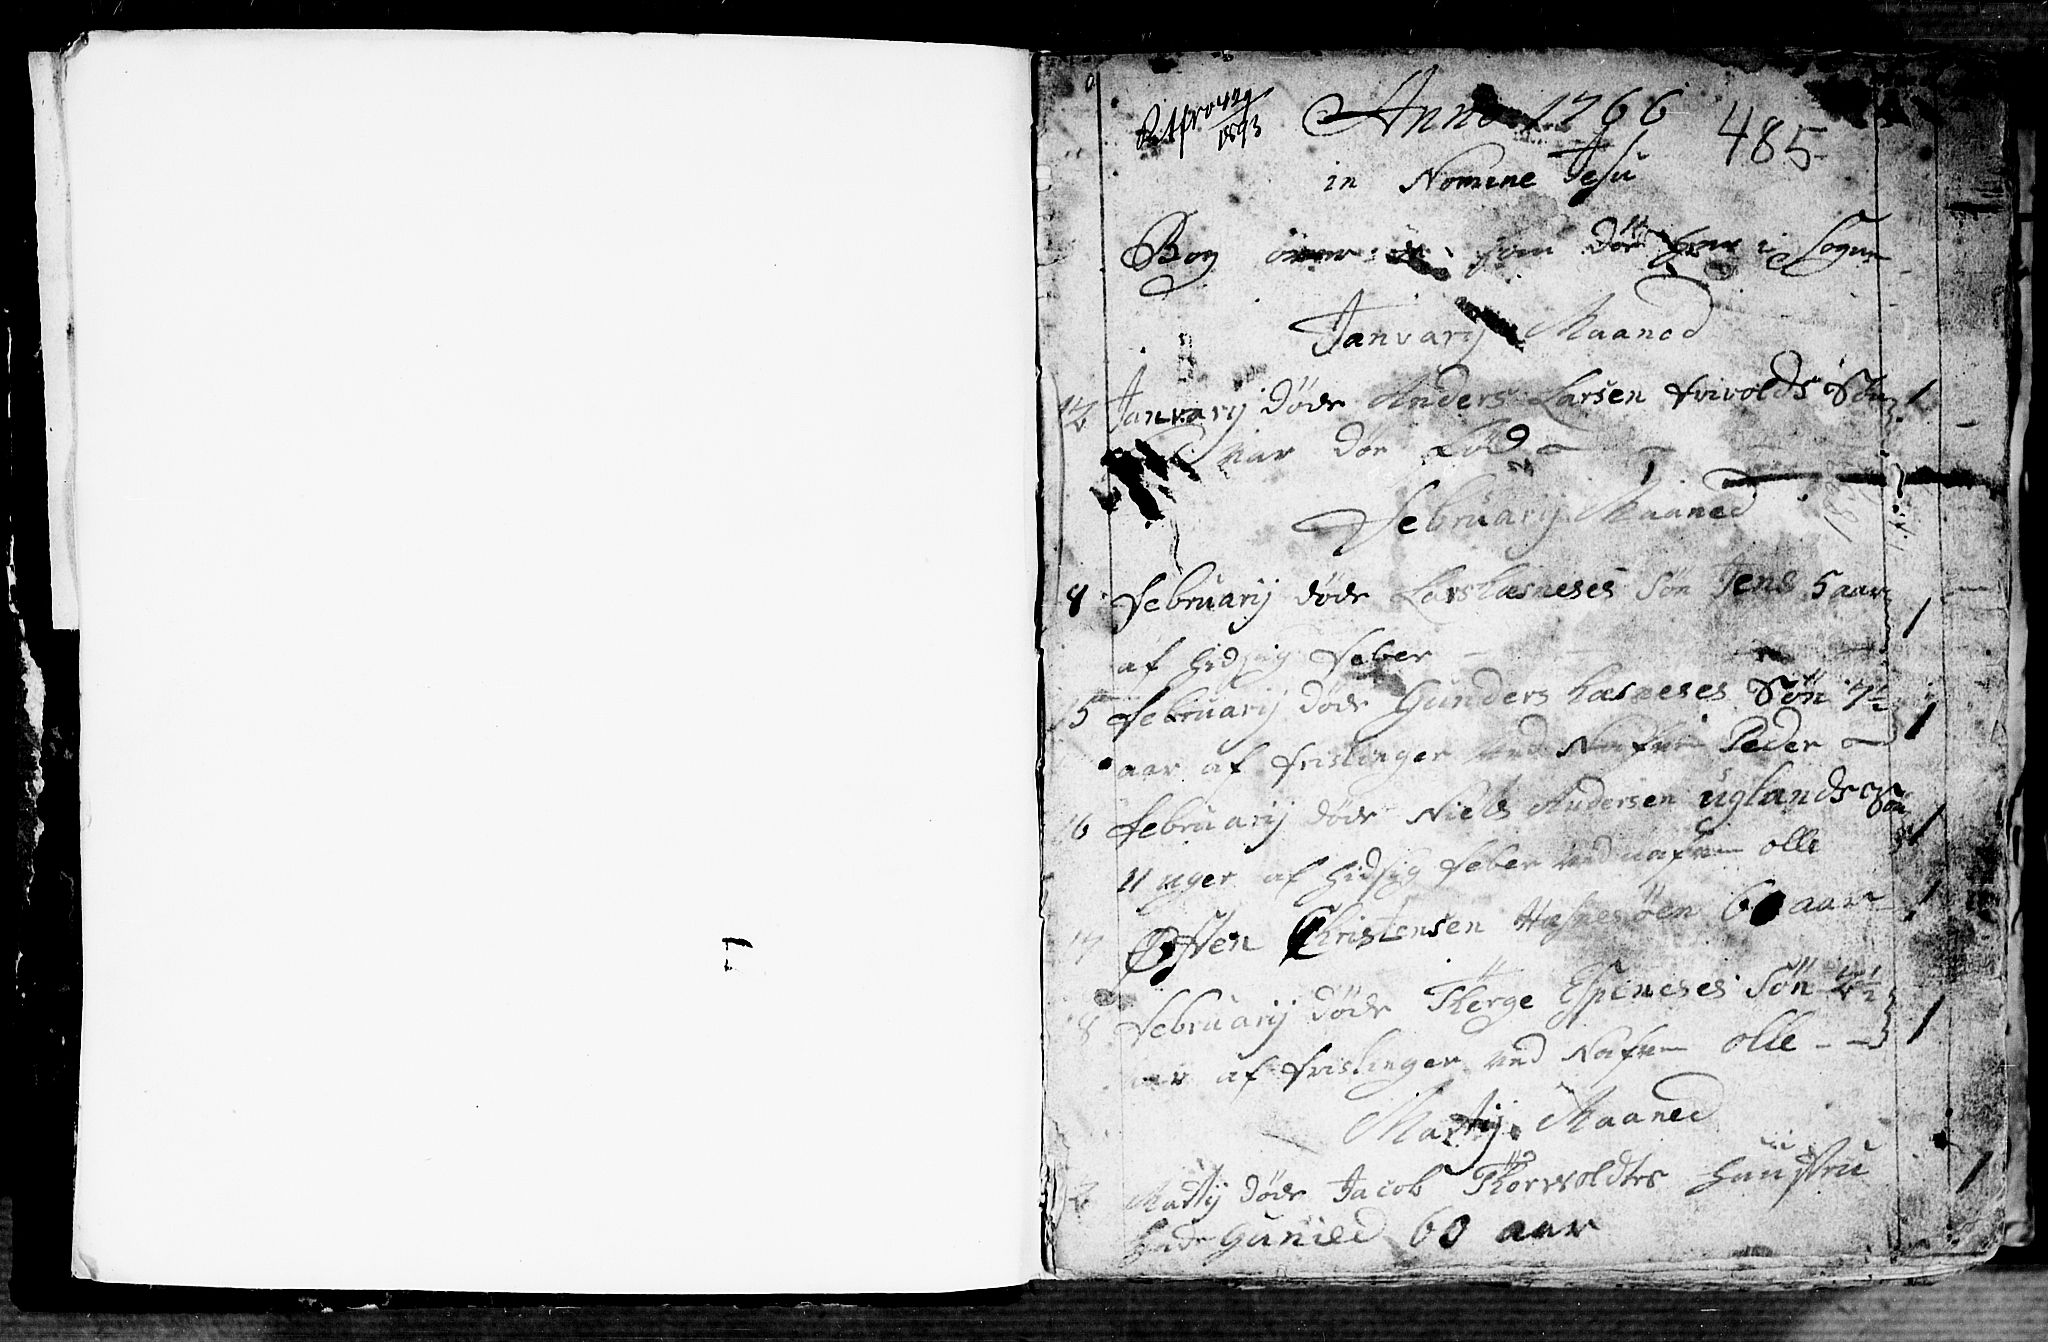 Anno 1766
485
in Nomine Jesu
Bog over de som døe her i Sogne
Janvarij Maaned
12 Janvarij døde Anders Larsen Frivolds Søn 1
var død fød
Februarij Maaned
8 Februarij døde Lars Hasneses Søn Jens 5 aar 1
af Hidsig Feber
15 Februarij døde Gunders Hasneses Søn 7½ 1
aar af Frislinger ved Nafvn Peder
16 Februarij døde Niels Andersen Uglands Søn 1
11 uger af Hidsig Feber ved nafvn Olle
17 Øysten Christensen Hasnesøen 60 aar 1
18 Februarij døde Therge Espeneses Søn 2½ 1
aar af Frislinger ved Nafvn Olle
Martij Maaned
2 Martij døde Jacob Thorvoldtes Hustru 1
Gunild 60 aar